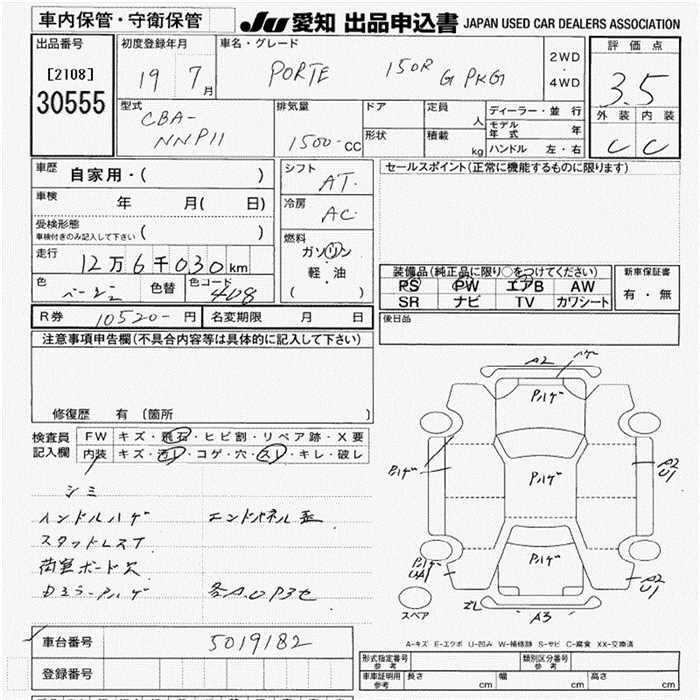 車内保管・守衛保管
JU 愛知 出品申込書 JAPAN USED CAR DEALERS ASSOCIATION
出品番号 初度登録年月 車名・グレード 評価点
[2108] 19 7月 PORTE 150R G PKG 2WD ・ 4WD 3.5
30555
型式 排気量 ドア 定員 人 ディーラー・並行 外装 内装
CBA-NNP11 1500-CC 形状 積載 kg モデル年式 年 C C
ハンドル 左・右
車歴 自家用・( ) シフト AT. セールスポイント(正常に機能するものに限ります)
車検 年 月( 日) 冷房 AC
受検形態 車検付きのみ記入して下さい ( ) 燃料 ガソリン
走行 12万6千030km 軽・油
色 ベージュ 色替 色コード 4D8 ( )
装備品(純正品に限り○をつけてください) 新車保証書
PS PW エアB AW 有・無
SR ナビ TV カワシート
R券 10520-円 名変期限 月 日 後日品
注意事項申告欄(不具合内容等は具体的に記入して下さい)
修復歴 有 [箇所 ]
検査員記入欄 FW キズ・飛石・ヒビ割・リペア跡・X要
内装 キズ・汚レ・コゲ・穴・スレ・キレ・破レ
シミ
ハンドルハゲ エンドパネル歪
スタッドレスT
荷室ボード欠
Dミラーハゲ 各A.U
A2 ハゲ
Pハゲ
Pハゲ
A2 U1
Pハゲ
A2 U1
スペア A3
A-キズ E-エクボ U-凹み W-補修跡 S-サビ C-腐食 XX-交換済
車台番号 5019182 形式指定番号 参考 類別区分番号 参考
登録番号 車庫証明用 参考 長さ cm 幅 cm 高さ cm